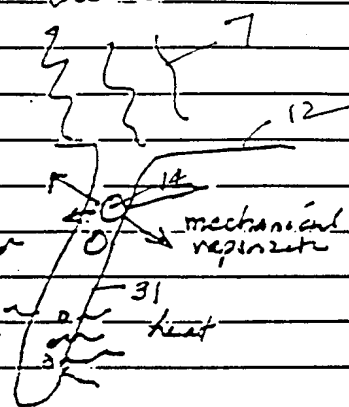 7
12
14
mechanical
vaporizate
31
heat